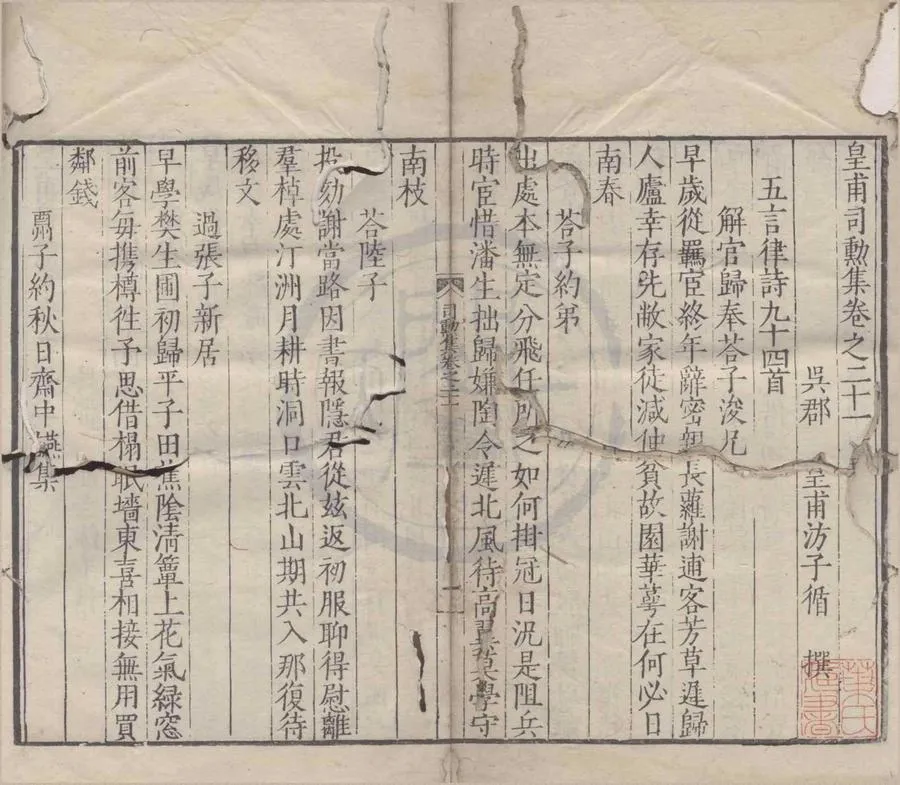 皇甫司勳集卷之二十一
吳郡 皇甫汸子循 撰
五言律詩九十四首
解官歸奉荅子浚兄
早歲從羈宦終年辭密親長蘿謝逋客芳草遲歸
人廬幸存先敝家徒減仲貧故園華萼在何必日
南春
荅子約弟
出處本無定分飛任所之如何掛冠日況是阻兵
時宦惜潘生拙歸嫌陶令遲北風待高翼莫學守
南枝
荅陸子
投劾謝當路因書報隱君從玆返初服聊得慰離
羣棹處汀洲月耕時洞口雲北山期共入那復待
移文
過張子新居
早學樊生圃初歸平子田蕉陰淸簟上花氣緑窓
前客每携樽徃予思借榻眠墻東喜相接無用買
鄰錢
覉子約秋日齋中讌集
司勳集卷之二十一
一
葉氏
書